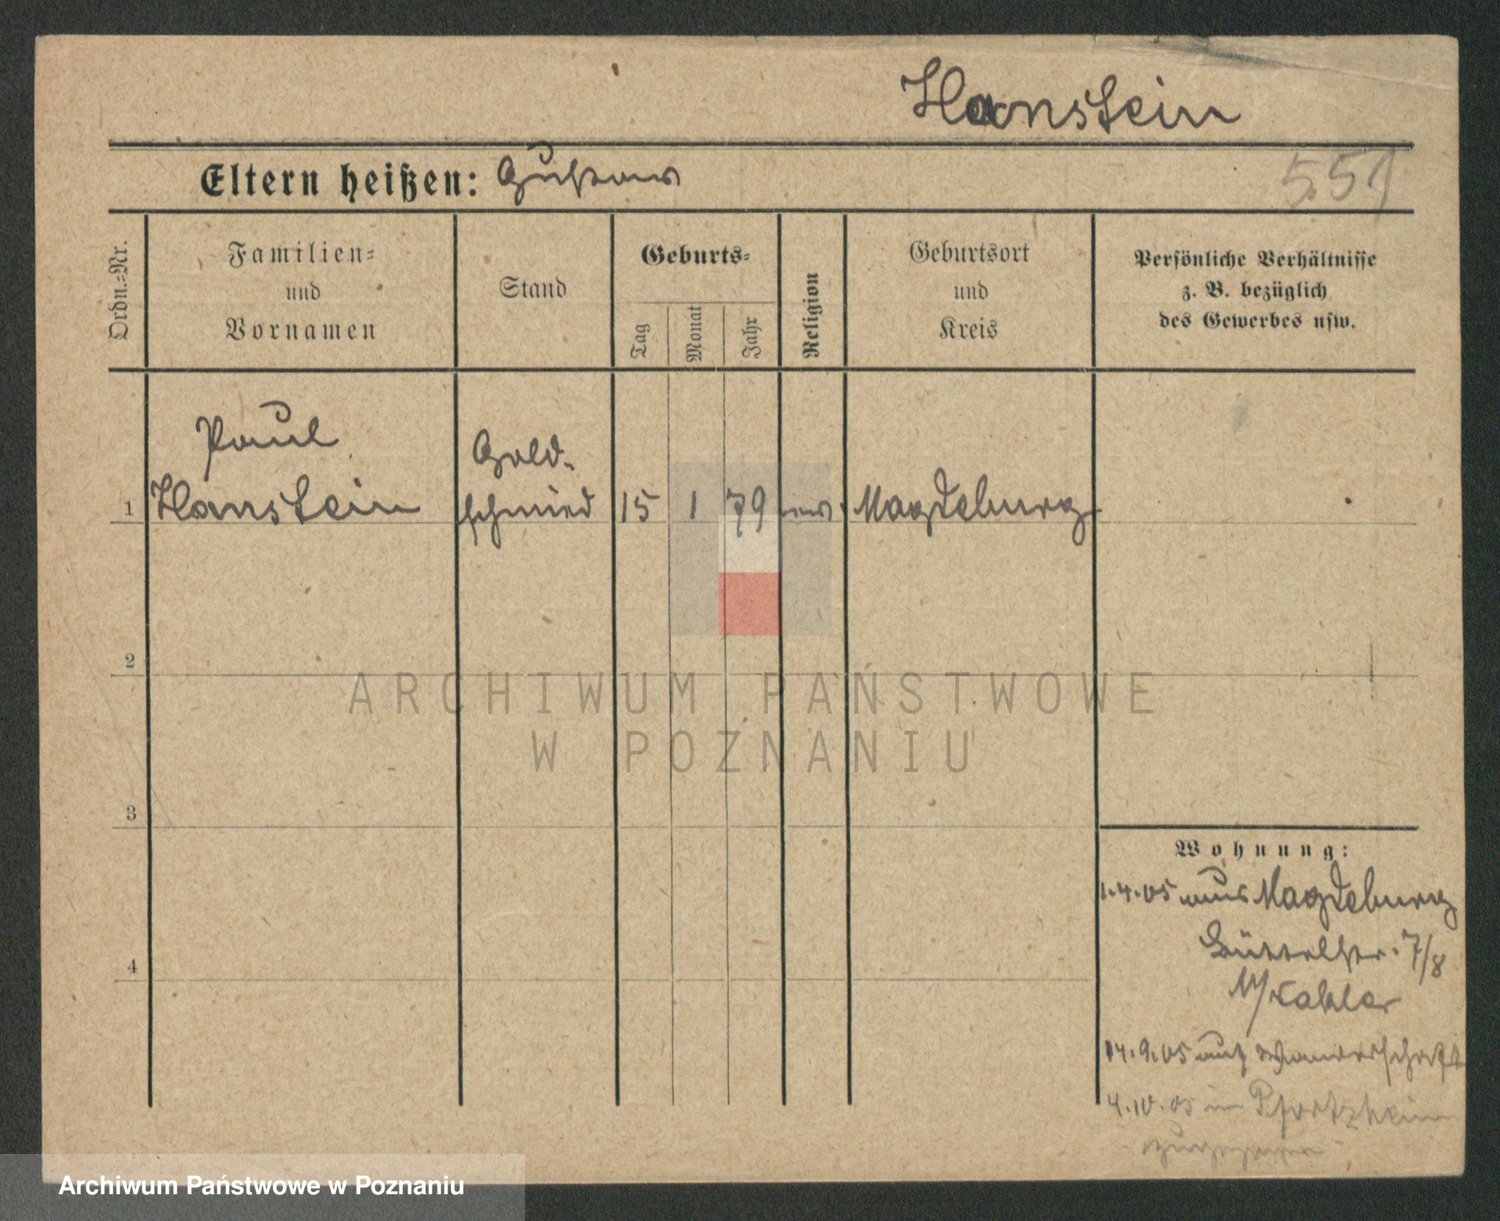 Hanstein
Eltern heißen: Gustav
551
Ordn.-Nr.
Familien-
und
Vornamen
Stand
Geburts-
Tag
Monat
Jahr
Religion
Geburtsort
und
Kreis
Persönliche Verhältnisse
z. B. bezüglich
des Gewerbes usw.
Paul
Gold-
1 Hanstein schmied 15 1 79 ev. Magdeburg
2
ARCHIWUM PAŃSTWOWE
W POZNANIU
3
Wohnung:
1.4.05 aus Magdeburg
Büttelstr. 7/8
b/Kahler
14.9.05 auf Wanderschaft
4
4.10.05 in Pfortzheim
zugezogen
Archiwum Państwowe w Poznaniu